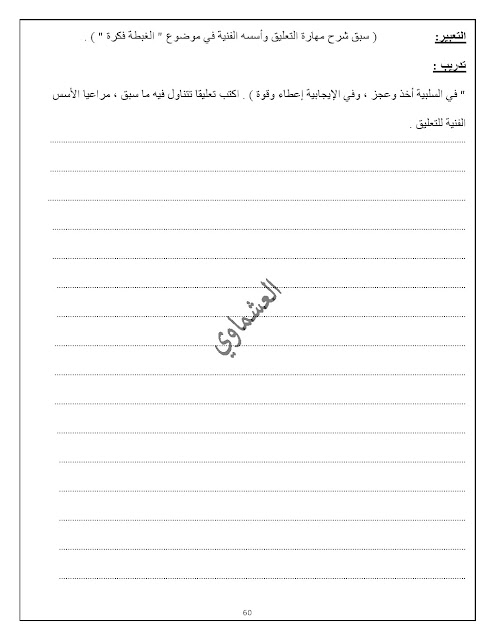 التعبير: ( سبق شرح مهارة التعليق وأسسه الفنية في موضوع " الغبطة فكرة " ) .
تدريب :
" في السلبية أخذ وعجز ، وفي الإيجابية إعطاء وقوة ) . اكتب تعليقا تتناول فيه ما سبق ، مراعيا الأسس
الفنية للتعليق .
العشماوي
60